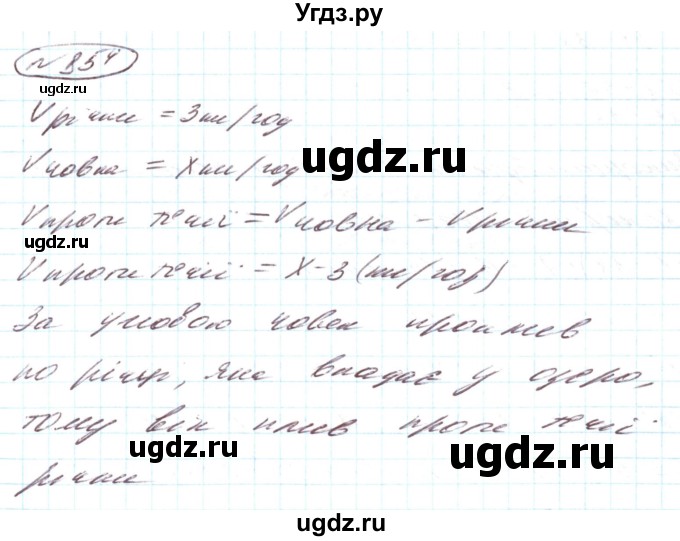 Угдз.ру
№854
ugdz.ru
Vрічки = 3км/год
ugdz.ru
Vчовна = Xкм/год
Vпроти течії = Vчовна - Vрічки
ugdz.ru
Vпроти течії = X-3(км/год)
За умовою човен проплив
по річці, яка впадає у озеро,
тому він плив проти течії
ugdz.ru
ugdz.ru
річки
ugdz.ru